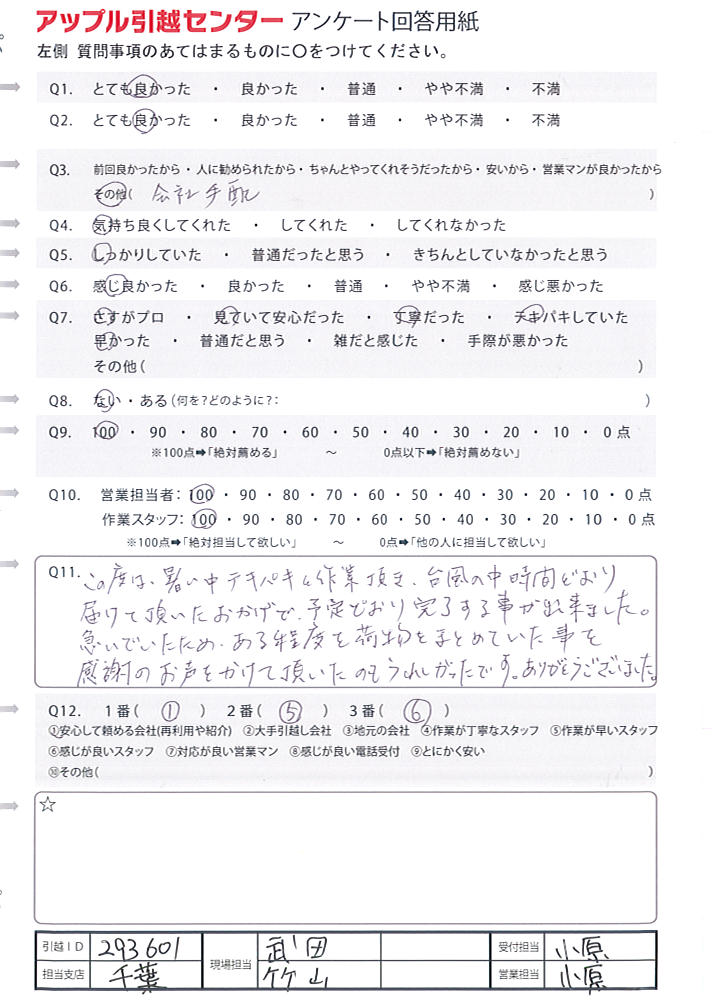 アップル引越センター アンケート回答用紙
左側 質問事項のあてはまるものに〇をつけてください。
Q1. とても良かった ・ 良かった ・ 普通 ・ やや不満 ・ 不満
Q2. とても良かった ・ 良かった ・ 普通 ・ やや不満 ・ 不満
Q3. 前回良かったから・人に勧められたから・ちゃんとやってくれそうだったから・安いから・営業マンが良かったから
その他( 会社手配 )
Q4. 気持ち良くしてくれた ・ してくれた ・ してくれなかった
Q5. しっかりしていた ・ 普通だったと思う ・ きちんとしていなかったと思う
Q6. 感じ良かった ・ 良かった ・ 普通 ・ やや不満 ・ 感じ悪かった
Q7. さすがプロ ・ 見ていて安心だった ・ 丁寧だった ・ テキパキしていた
早かった ・ 普通だと思う ・ 雑だと感じた ・ 手際が悪かった
その他( )
Q8. ない・ある(何を?どのように?: )
Q9. 100 ・ 90 ・ 80 ・ 70 ・ 60 ・ 50 ・ 40 ・ 30 ・ 20 ・ 10 ・ 0点
※100点➡「絶対薦める」 ～ 0点以下➡「絶対薦めない」
Q10. 営業担当者: 100 ・ 90 ・ 80 ・ 70 ・ 60 ・ 50 ・ 40 ・ 30 ・ 20 ・ 10 ・ 0点
作業スタッフ: 100 ・ 90 ・ 80 ・ 70 ・ 60 ・ 50 ・ 40 ・ 30 ・ 20 ・ 10 ・ 0点
※100点➡「絶対担当して欲しい」 ～ 0点➡「他の人に担当して欲しい」
Q11. この度は、暑い中テキパキと作業頂き、台風の中時間どおり
届けて頂いたおかげで、予定どおり完了する事が出来ました。
急いでいたため、ある程度を荷物をまとめていた事を
感謝のお声をかけて頂いたのもうれしかったです。ありがとうございました。
Q12. 1番( ① ) 2番( ⑤ ) 3番( ⑥ )
①安心して頼める会社(再利用や紹介) ②大手引越し会社 ③地元の会社 ④作業が丁寧なスタッフ ⑤作業が早いスタッフ
⑥感じが良いスタッフ ⑦対応が良い営業マン ⑧感じが良い電話受付 ⑨とにかく安い
⑩その他( )
☆
引越ID 293601 現場担当 武田 受付担当 小原
担当支店 千葉 竹山 営業担当 小原